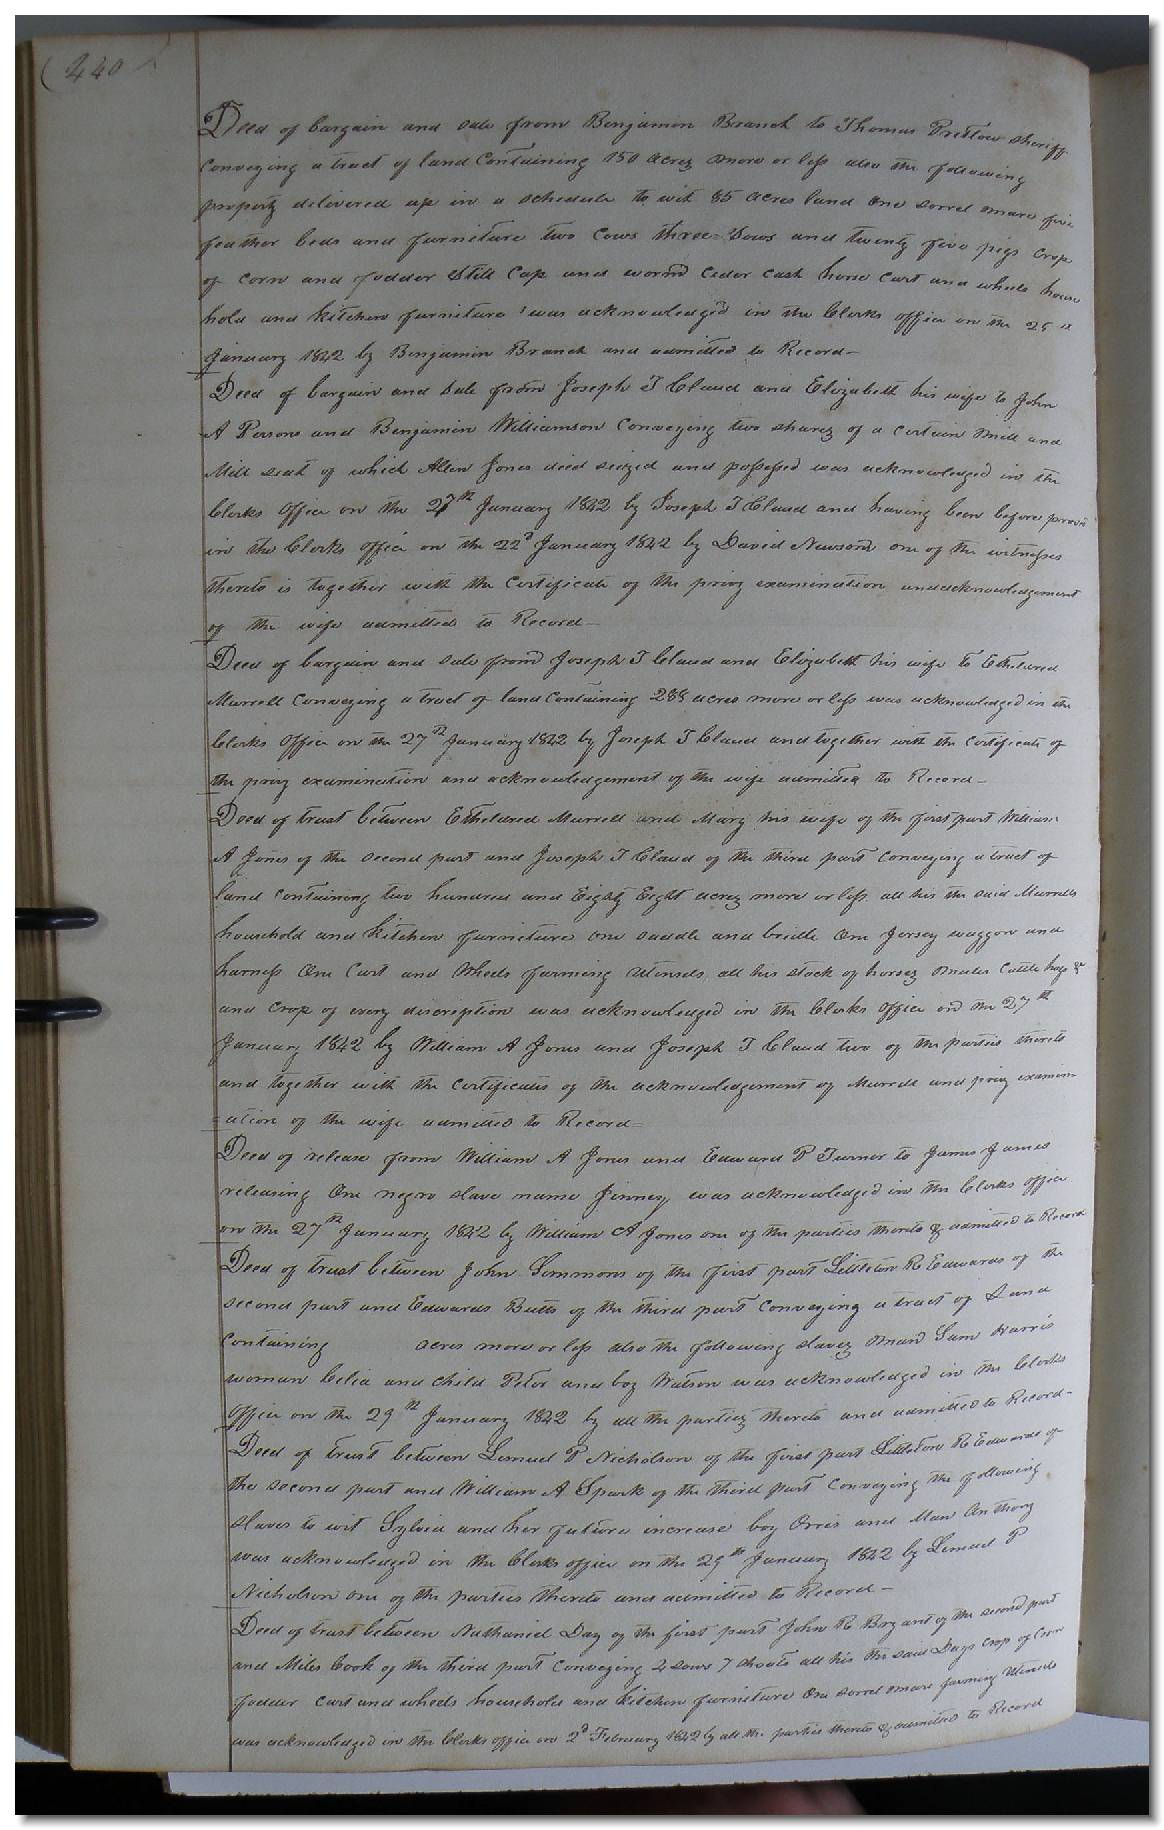 (440)
Deed of bargain and sale from Benjamin Branch to Thomas Pretlow sheriff
conveying a tract of land containing 150 acres more or less also the following
property delivered up in a schedule to wit 85 acres land one sorrel mare five
feather beds and furniture two cows three sows and twenty five pigs crop
of corn and fodder Still Cap and worm Ceder cask horse cart and wheels house
hold and kitchen furniture was acknowledged in the Clerks office on the 25th
January 1842 by Benjamin Branch and admitted to Record—
Deed of bargain and sale from Joseph T Claud and Elizabeth his wife to John
A Persons and Benjamin Williamson Conveying two shares of a certain mill and
Mill seat of which Allen Jones died seized and possessed was acknowledged in the
Clerks Office on the 27th January 1842 by Joseph T Claud and having been before
in the Clerks office on the 22d January 1842 by David Newsom one of the witnesses
thereto is together with the Certificate of the privy examination and acknowledgement
of the wife admitted to Record—
Deed of bargain and sale from Joseph T Claud and Elizabeth his wife to Etheldred
Murrell Conveying a tract of land Containing 288 acres more or less was acknowledged in the
Clerks Office on the 27th January 1842 by Joseph T Claud and together with the Certificate of
the privy examination and acknowledgement of the wife admitted to Record—
Deed of trust between Etheldred Murrell and Mary his wife of the first part William
A Jones of the second part and Joseph T Claud of the third part conveying a tract of
land containing two hundred and Eighty Eight acres more or less all his the said Murrells
household and kitchen furniture one saddle and bridle One Jersey waggon and
harness One Cart and Wheels farming utensels all his stock of horses mules Cattle hogs &c
and crop of every discription was acknowledged in the Clerks office on the 27th
January 1842 by William A Jones and Joseph T Claud two of the parties thereto
and together with the certificates of the acknowledgement of Murrell and privy examin
=ation of the wife admitted to Record=
Deed of release from William A Jones and Edward P Turner to James James
releasing One negro slave name Jinney was acknowledged in the Clerks office
on the 27th January 1842 by William A Jones one of the parties thereto & admitted to Record
Deed of trust between John Simmons of the first part Littleton R Edwards of the
second part and Edwards Butts of the third part Conveying a tract of Land
Containing acres more or less also the following slaves man Sam Harris
woman Celia and child Peter and boy Watson was acknowledged in the Clerks
Office on the 29th January 1842 by all the parties thereto and admitted to Record—
Deed of trust between Lemuel P Nicholson of the first part Littleton R Edwards of
the second part and William A Spark of the third part Conveying the following
slaves to wit Sylvia and her future increase boy Orris and Man Anthony
was acknowledged in the Clerks office on the 29th January 1842 by Lemuel P
Nicholson one of the parties thereto and admitted to Record—
Deed of trust between Nathaniel Day of the first part John R Bryant of the second part
and Miles Cook of the third part Conveying 2 sows 7 shoats all his the said Days crop of Corn
fodder cart and wheels household and kitchen furniture One sorrel mare farming Utensels
was acknowledged in the Clerks office on 2d February 1842 by all the parties thereto & admitted to Record